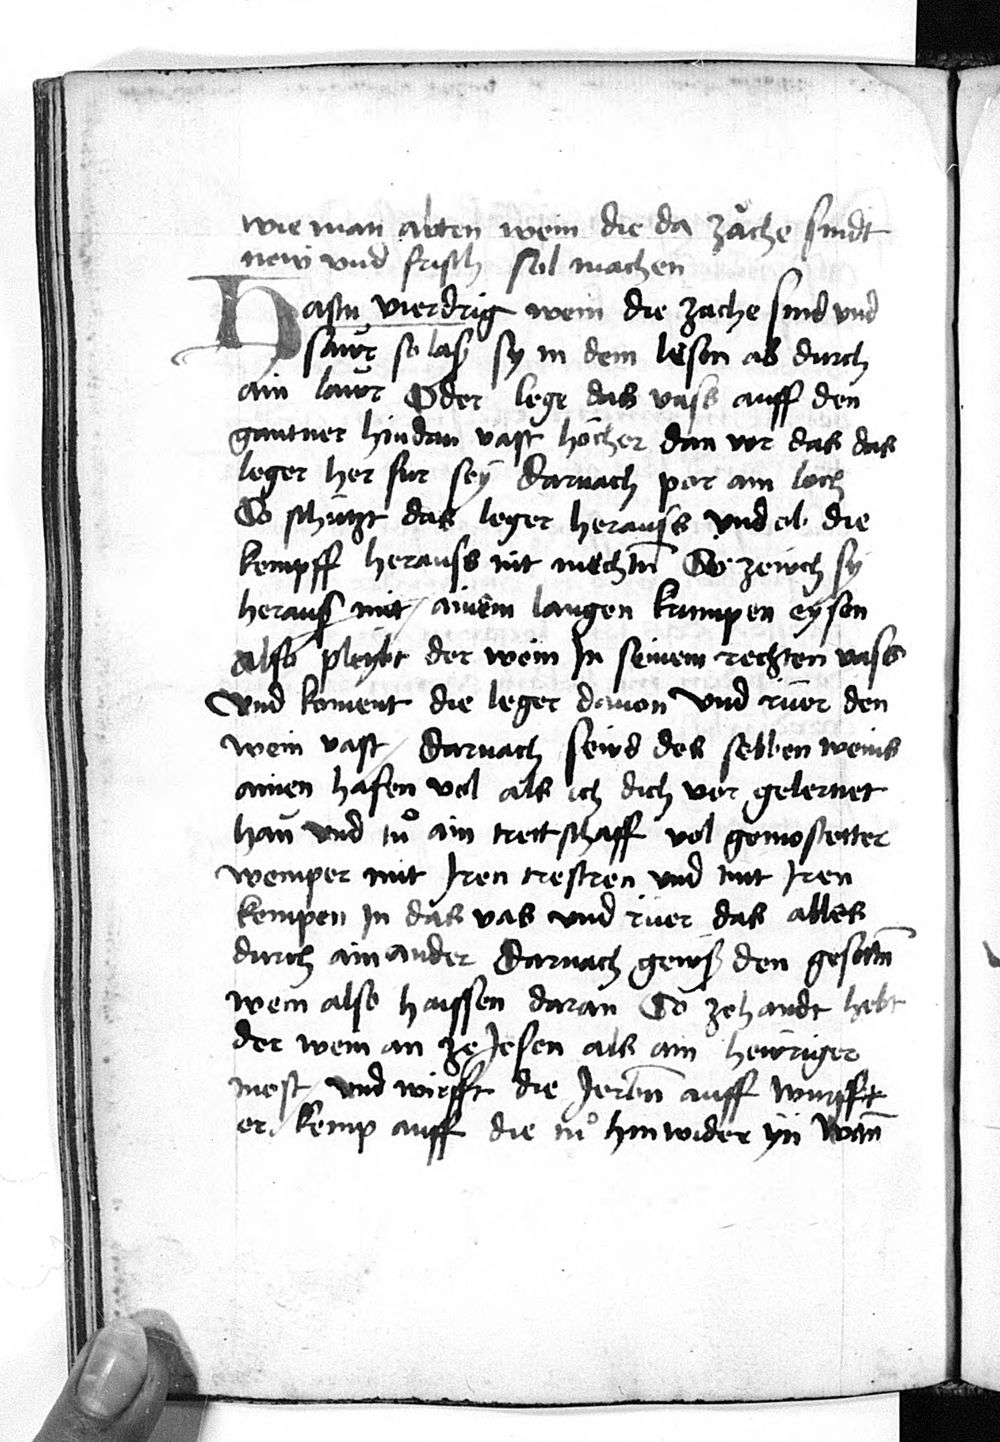 wie man alten wein die da zäche sindt
new vnd frisch sol machen
Hastu vierdrig wein die zache sind vnd
sawr so las sy in dem lesen ab durch
ain lawr Oder lege das vass auff den
gantner hindan vast höcher dan vor das das
leger her fur sey Darnach por ain loch
So schützt das leger herauss vnd ob die
kempff herauss nit mechtn So zewch sy
herauss mit ainem langen krumpen eysen
also pleybt der wein In seinem rechten vass
Vnd koment die leger dauon Vnd rüer den
wein vast Darnach sewd des selben weins
ainen hafen vol als ich dich vor gelernet
han vnd tů ain trettschaff vol gemosteter
wemper mit Iren trestren vnd mit Iren
kempen In das vas vnd rüer das alles
durch ain ander Darnach gews den gesottn
wein also haissen daran So zehandt hebt
der wein an ze Iesen als ain hewriger
most vnd wirfft die Jerbn auff wurfft
er kemp auff die tů hinwider yn Wann